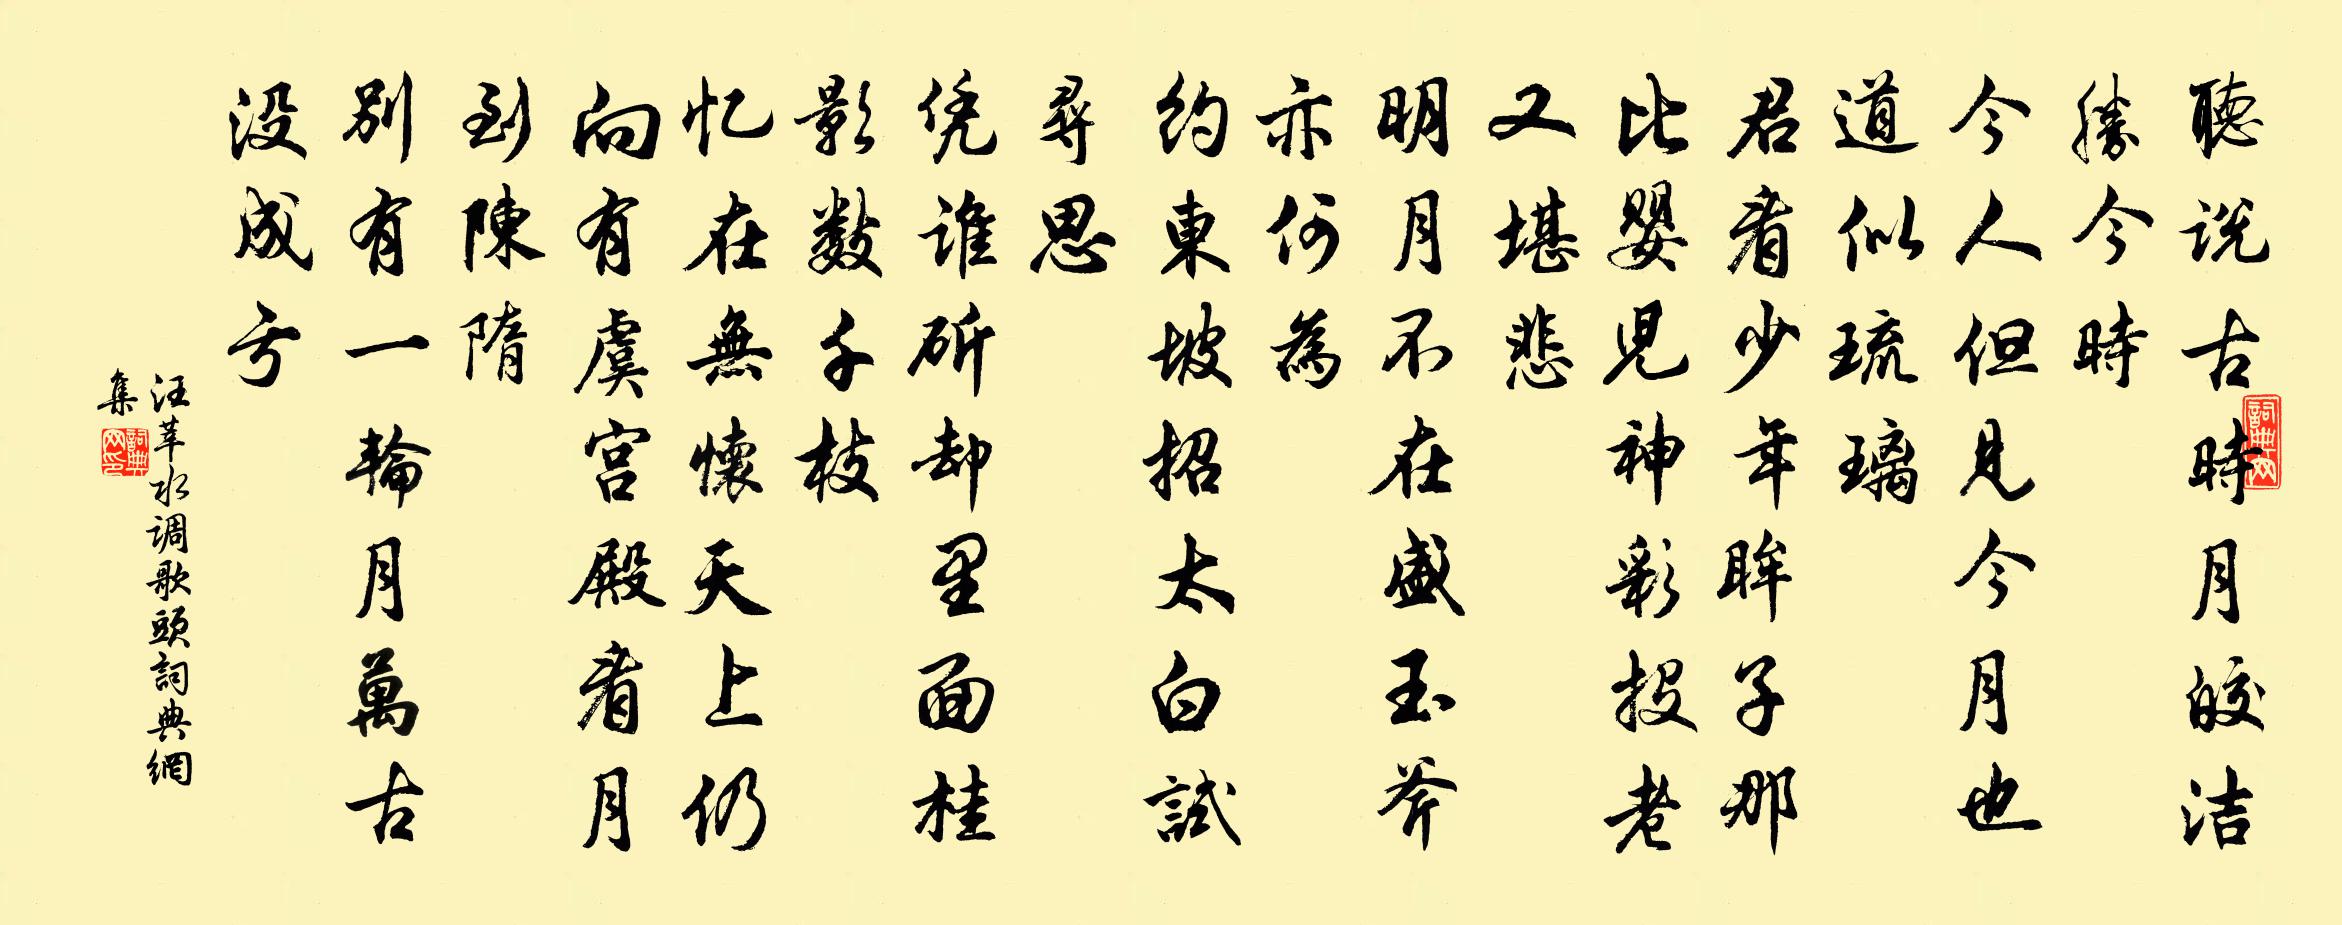 聽説古時月皎洁
勝今時
今人但見今月也
道似琉璃
君看少年眸子那
比嬰児神彩投老
又堪悲
明月不在盛玉斧
亦何為
約東坡招太白試
尋思
凭谁斫却里面桂
影数千枝
忆在無懷天上仍
向有虞宫殿看月
到陳隋
别有一輪月萬古
没成亏
汪莘水调歌頭詞典網
集
詞典网
詞典网印